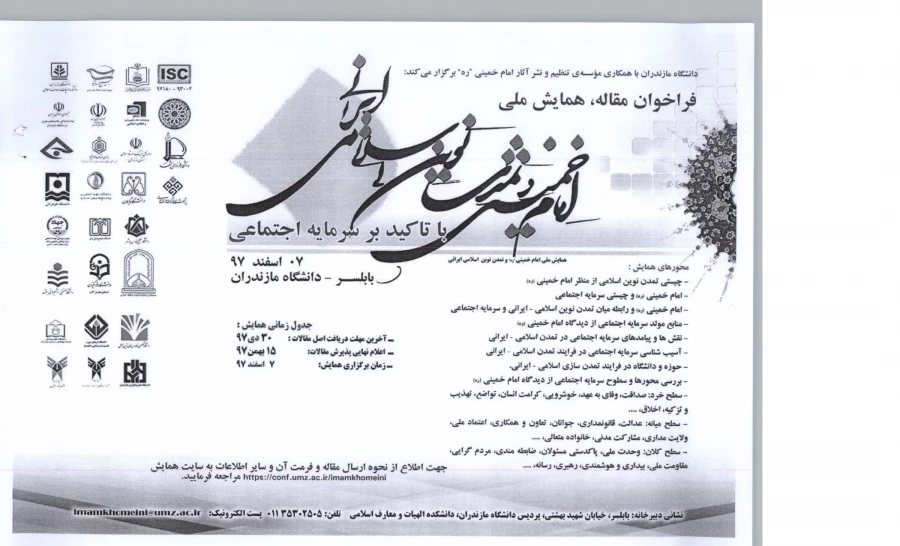 دانشگاه مازندران با همکاری مؤسسه‌ی تنظیم و نشر آثار امام خمینی "ره" برگزار می‌کند:
فراخوان مقاله، همایش ملی
امام خمینی و تمدن نوین اسلامی ایرانی
با تاکید بر سرمایه اجتماعی
همایش ملی امام خمینی (ره) و تمدن نوین اسلامی ایرانی
۰۷ اسفند ۹۷
بابلسر - دانشگاه مازندران
ISC
۹۷۱۸۰ - ۹۳۰۰۲
محورهای همایش:
- چیستی تمدن نوین اسلامی از منظر امام خمینی (ره)
- امام خمینی (ره) و چیستی سرمایه اجتماعی
- امام خمینی (ره) و رابطه میان تمدن نوین اسلامی - ایرانی و سرمایه اجتماعی
- منابع مولد سرمایه اجتماعی از دیدگاه امام خمینی (ره)
- نقش ها و پیامدهای سرمایه اجتماعی در تمدن اسلامی - ایرانی
- آسیب شناسی سرمایه اجتماعی در فرایند تمدن اسلامی - ایرانی
- حوزه و دانشگاه در فرایند تمدن سازی اسلامی - ایرانی.
- بررسی محورها و سطوح سرمایه اجتماعی از دیدگاه امام خمینی (ره)
- سطح خرد: صداقت، وفای به عهد، خوشرویی، کرامت انسان، تواضع، تهذیب
و تزکیه، اخلاق، ....
- سطح میانه: عدالت، قانونمداری، جوانان، تعاون و همکاری، اعتماد ملی،
ولایت مداری، مشارکت مدنی، خانواده متعالی، ....
- سطح کلان: وحدت ملی، پاکدستی مسئولان، ضابطه مندی، مردم گرایی،
مقاومت ملی، بیداری و هوشمندی، رهبری، رسانه، ....
جدول زمانی همایش:
- آخرین مهلت دریافت اصل مقالات: ۳۰ دی ۹۷
- اعلام نهایی پذیرش مقالات: ۱۵ بهمن ۹۷
- زمان برگزاری همایش: ۷ اسفند ۹۷
جهت اطلاع از نحوه ارسال مقاله و فرمت آن و سایر اطلاعات به سایت همایش
https://conf.umz.ac.ir/imamkhomeini مراجعه فرمایید.
نشانی دبیرخانه: بابلسر، خیابان شهید بهشتی، پردیس دانشگاه مازندران، دانشکده الهیات و معارف اسلامی تلفن: ۳۵۳۰۲۵۰۵ ۰۱۱ پست الکترونیک: imamkhomeini@umz.ac.ir